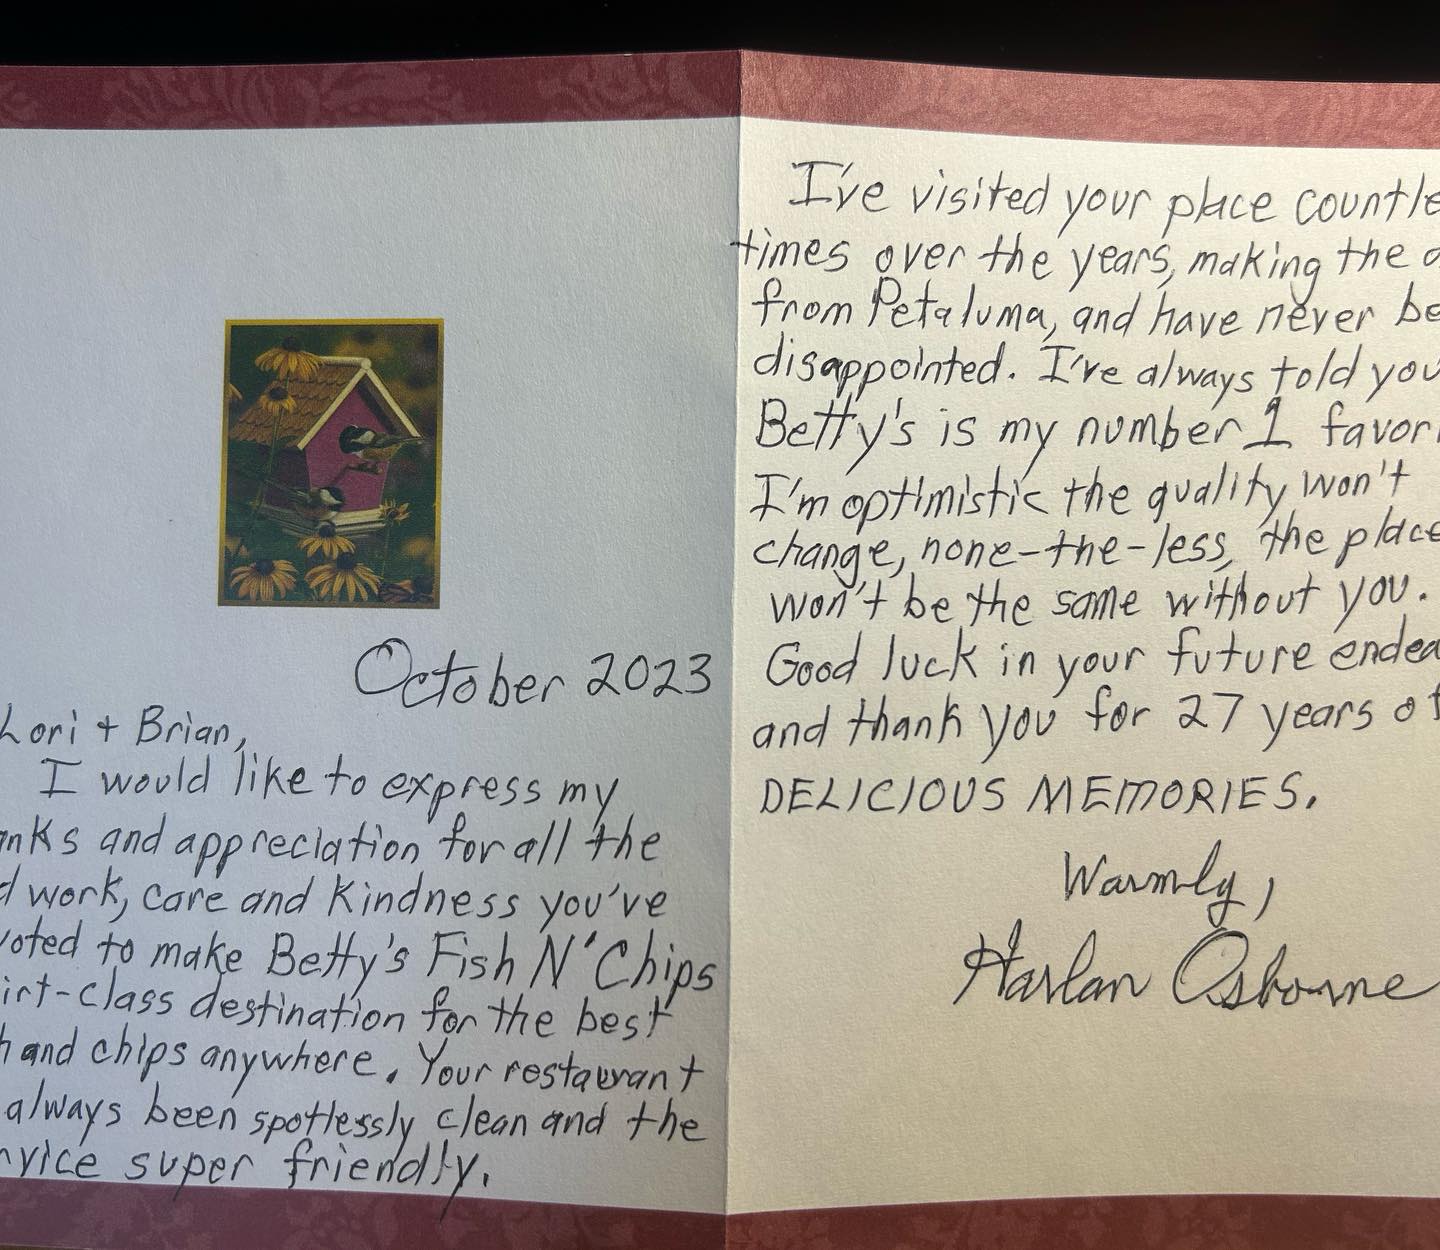 October 2023
Lori + Brian,
I would like to express my
anks and appreciation for all the
d work, care and kindness you've
voted to make Betty's Fish N' Chips
irt-class destination for the best
h and chips anywhere. Your restaurant
always been spotlessly clean and the
rvice super friendly.
I've visited your place countle
times over the years, making the d
from Petaluma, and have never be
disappointed. I've always told you
Betty's is my number 1 favori
I'm optimistic the quality won't
change, none-the-less, the place
won't be the same without you.
Good luck in your future endea
and thank you for 27 years of
DELICIOUS MEMORIES.
Warmly,
Harlan Osborne